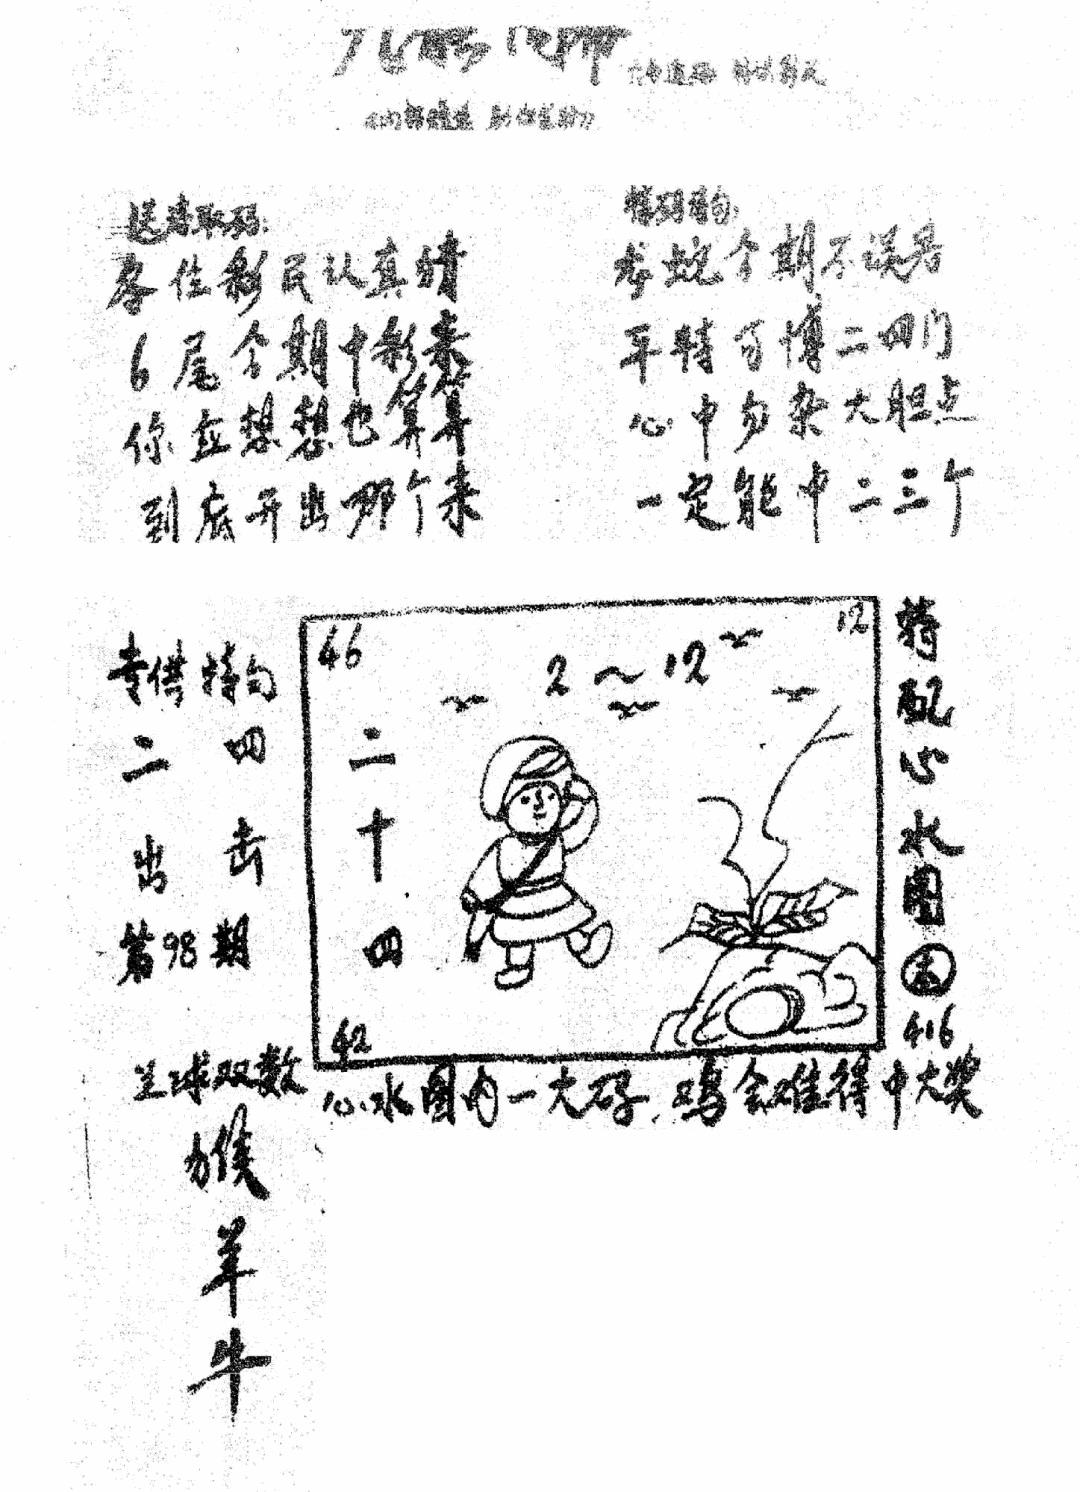 送诗取码:
各位彩民认真猜
6尾个期中彩来
你应想想也算算
到底开出那个来
特码诗句:
龙蛇个期不误君
平特可博二四门
心中勿杂大胆点
一定能中二三个
专供特句
四击
二出
第98期
46
12
2~12
二十四
42
特配心水图
416
兰球双数
心水图内一大码,鸡舍难得中大奖
猴
羊
牛